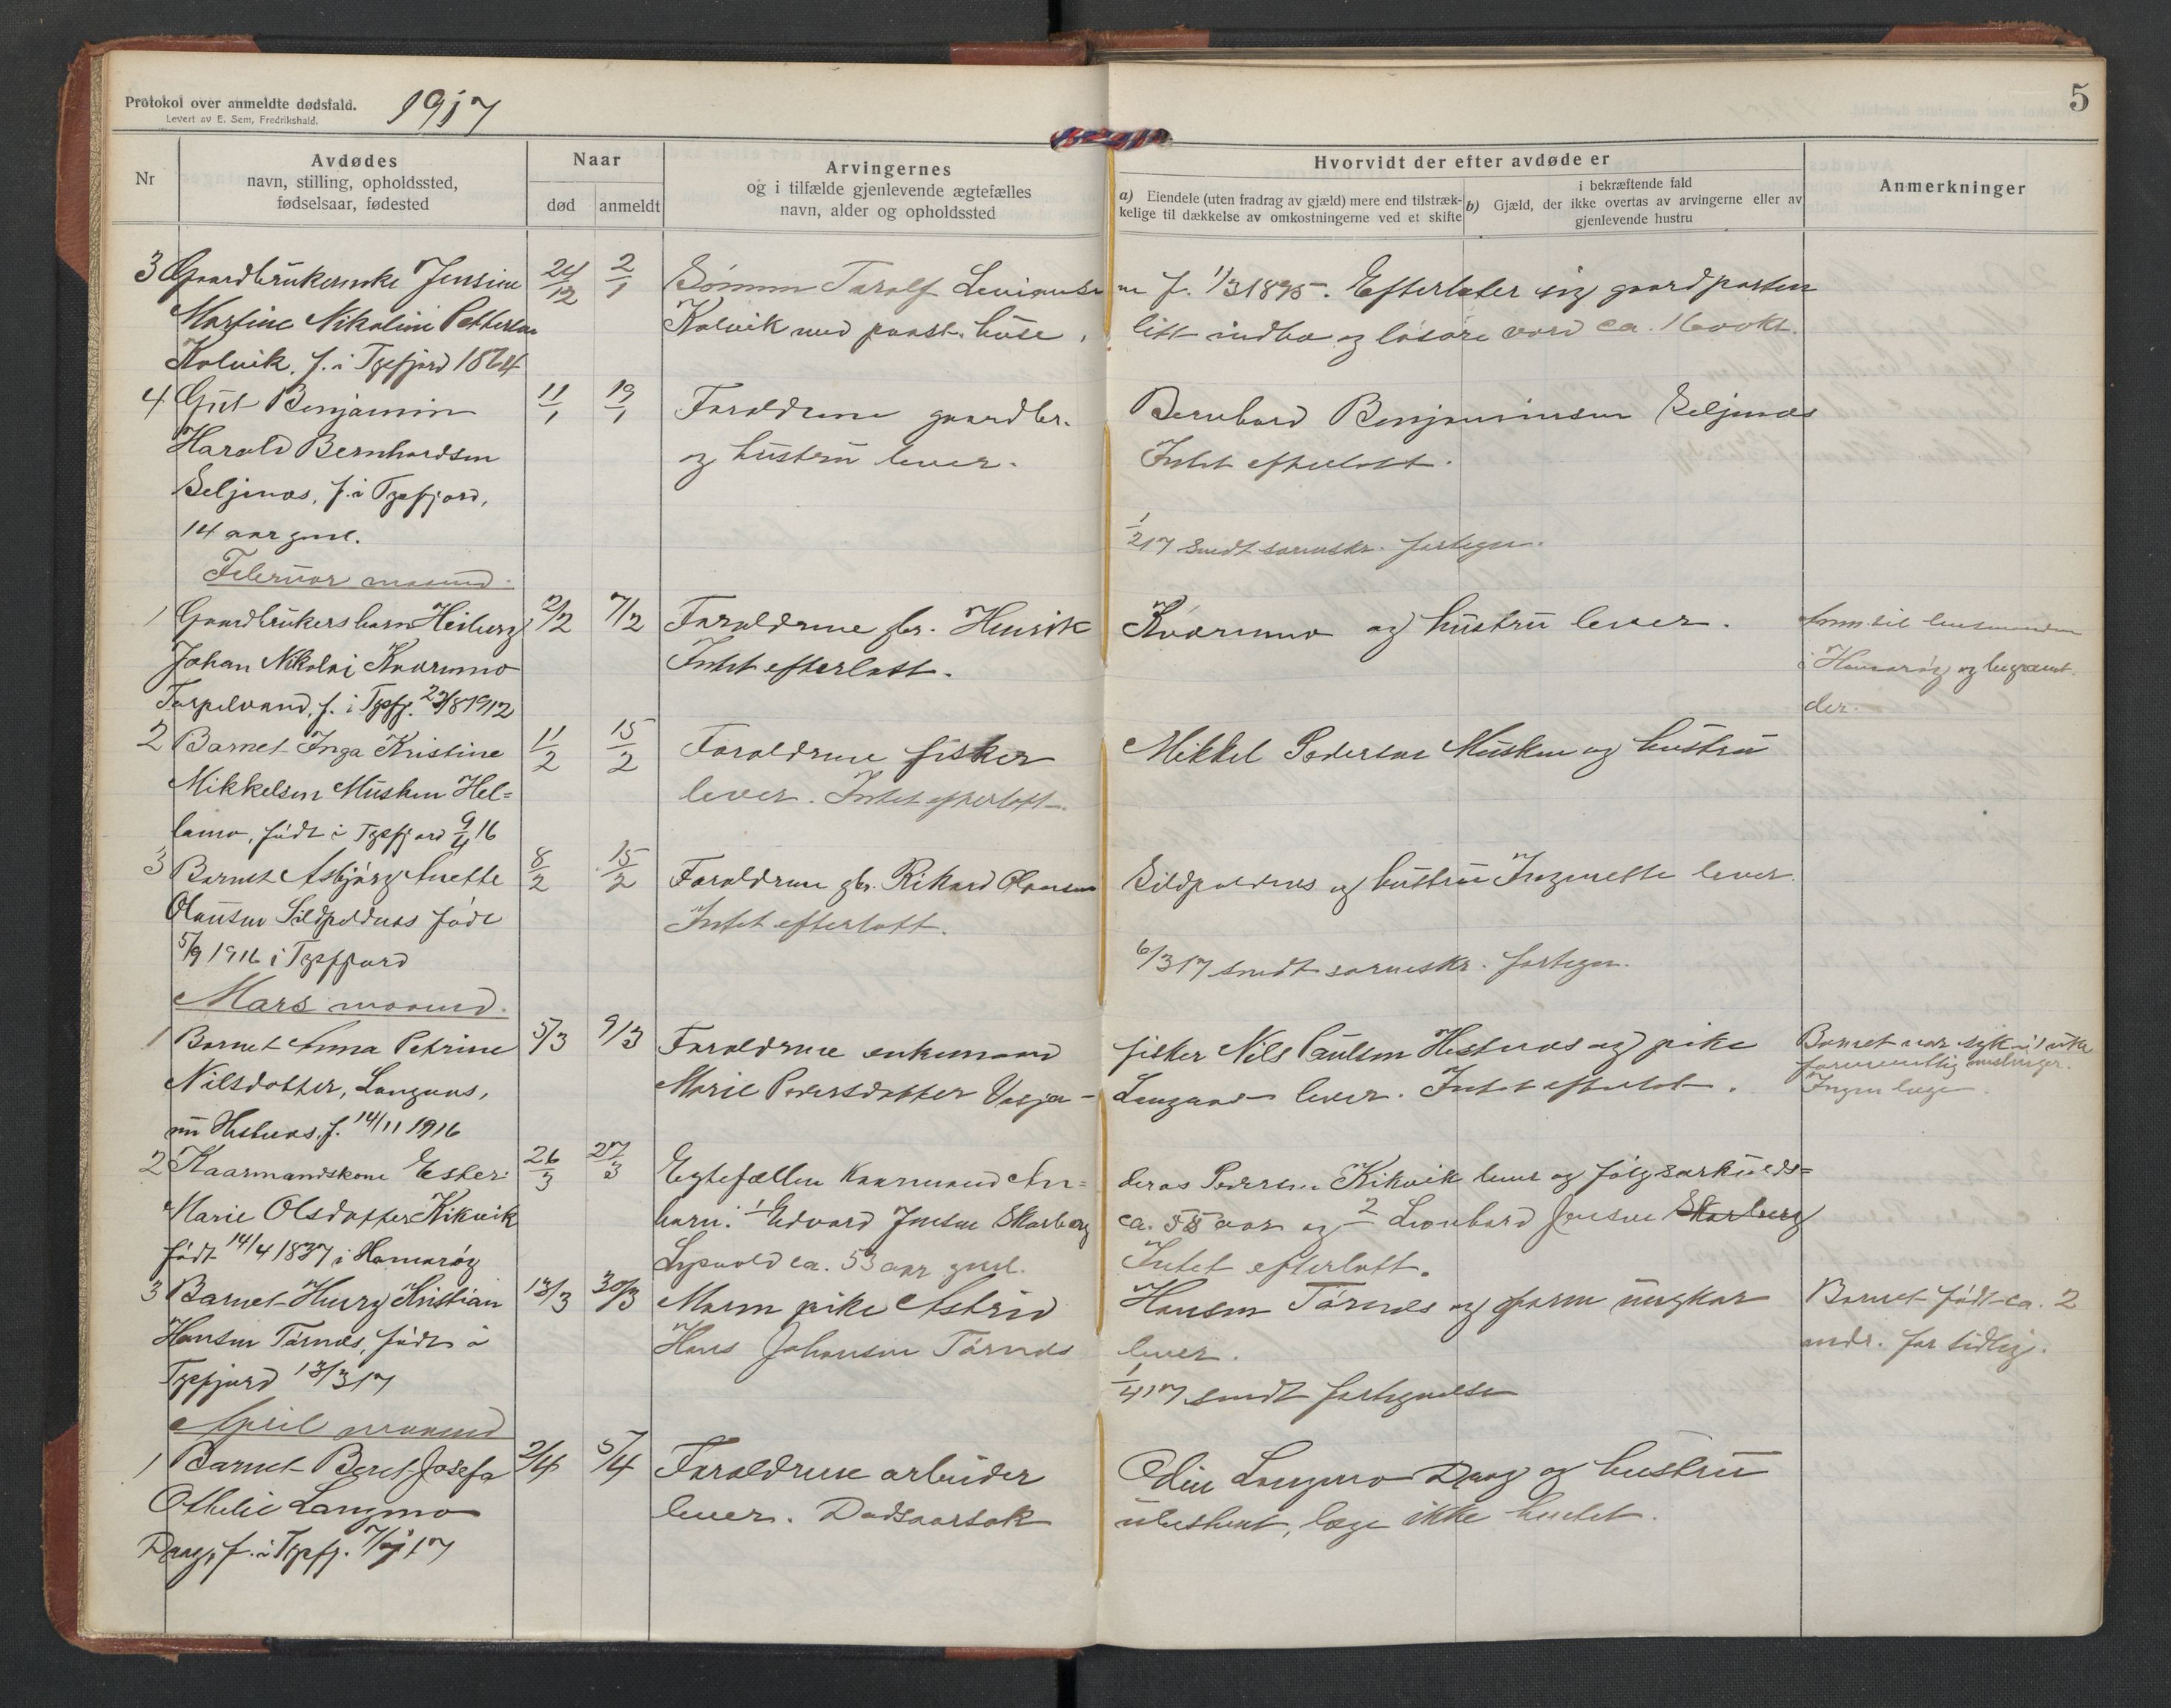 Protokol over anmeldte dødsfald.
Levert av E. Sem, Fredrikshald.
1917
5
Nr
Avdødes
navn, stilling, opholdssted,
fødselsaar, fødested
Naar
død
anmeldt
Arvingernes
og i tilfælde gjenlevende ægtefælles
navn, alder og opholdssted
Hvorvidt der efter avdøde er
a) Eiendele (uten fradrag av gjæld) mere end tilstræk-
kelige til dækkelse av omkostningerne ved et skifte
i bekræftende fald
b) Gjæld, der ikke overtas av arvingerne eller av
gjenlevende hustru
Anmerkninger
3 Gaardbrukerenke Jensine 24/12 2/1 Sønnen Toralf f. 1/3 1895. Efterlater sig gaardparten
Martine Nikoline Pettersen Kalvik med paast. huse, litt indbo og løsøre værd ca. 1600 kr.
Kalvik, f. i Tysfjord 1864
4 Gut Benjamin 11/1 19/1 Forældrene gaardbr. Bernhard Benjaminsen Seljenæs
Harald Bernhardsen og hustru lever. Intet efterlatt.
Seljenæs, f. i Tysfjord,
14 aar gml. 1/2 17 sendt sorenskr. fortegn.
Februar maaned.
1 Gaardbrukersbarn Heiberg 2/2 7/2 Forældrene gbr. Henrik Kværnmo og hustru lever. Anm. til lensmanden
Johan Nikolai Kværnmo Intet efterlatt. i Hamarøy og begravet
Tørpelvand, f. i Tysfj. 22/8 1912 der.
2 Barnet Inga Kristine 11/2 15/2 Forældrene fisker Mikkel Pedersen Musken og hustru
Mikkelsen Musken Hel= lever. Intet efterlatt.
lamo, født i Tysfjord 9/4 16
3 Barnet Asbjørg Anette 8/2 15/2 Forældrene gbr. Rikard Olausen Sildpoldnes og hustru Ingenette lever.
Olausen Sildpoldnes født Intet efterlatt.
5/9 1916 i Tysfjord 6/3 17 sendt sorenskr. fortegn.
Mars maaned.
1 Barnet Anna Petrine 5/3 9/3 Forældrene enkemand fisker Nils Paulsen Hestnes og pike Barnet var syk i 1 uke
Nilsdotter, Langnes, Marie Pedersdotter Langnes lever. Intet efterlatt. formentlig meslinger.
nu Hestnes, f. 14/11 1916 Ingen læge.
2 Kaarmandskone Ester 26/3 27/3 Egtefællen kaarmand An= dreas Pedersen Kikvik lever og følg. særkulds=
Marie Olsdotter Kikvik barn: 1 Edvard Jensen Skarberg ca. 55 aar og 2 Leonhard Jensen Skarberg
født 14/4 1837 i Hamarøy ca. 53 aar gml. Intet efterlatt.
3 Barnet Henry Kristian 13/3 30/3 Moren pike Astrid Hansen Tårnes og faren ungkar Barnet født ca. 2
Hansen Tårnes, født i Hans Johansen Tårnes lever. mdr. for tidlig.
Tysfjord 13/3 17 1/4 17 sendt fortegnelse
April maaned
1 Barnet Beret Josefa 2/4 5/4 Forældrene arbeider Odin Langmo Drag og hustru
Othelie Langmo lever. Dødsaarsak ubekjent, læge ikke hentet.
Drag, f. i Tysfj. 17